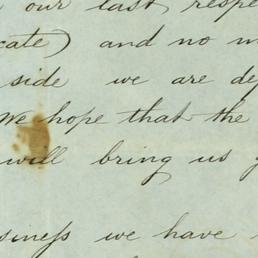 our last respe
cate) and no m
side we are de
We hope that the
will bring us g
siness we have